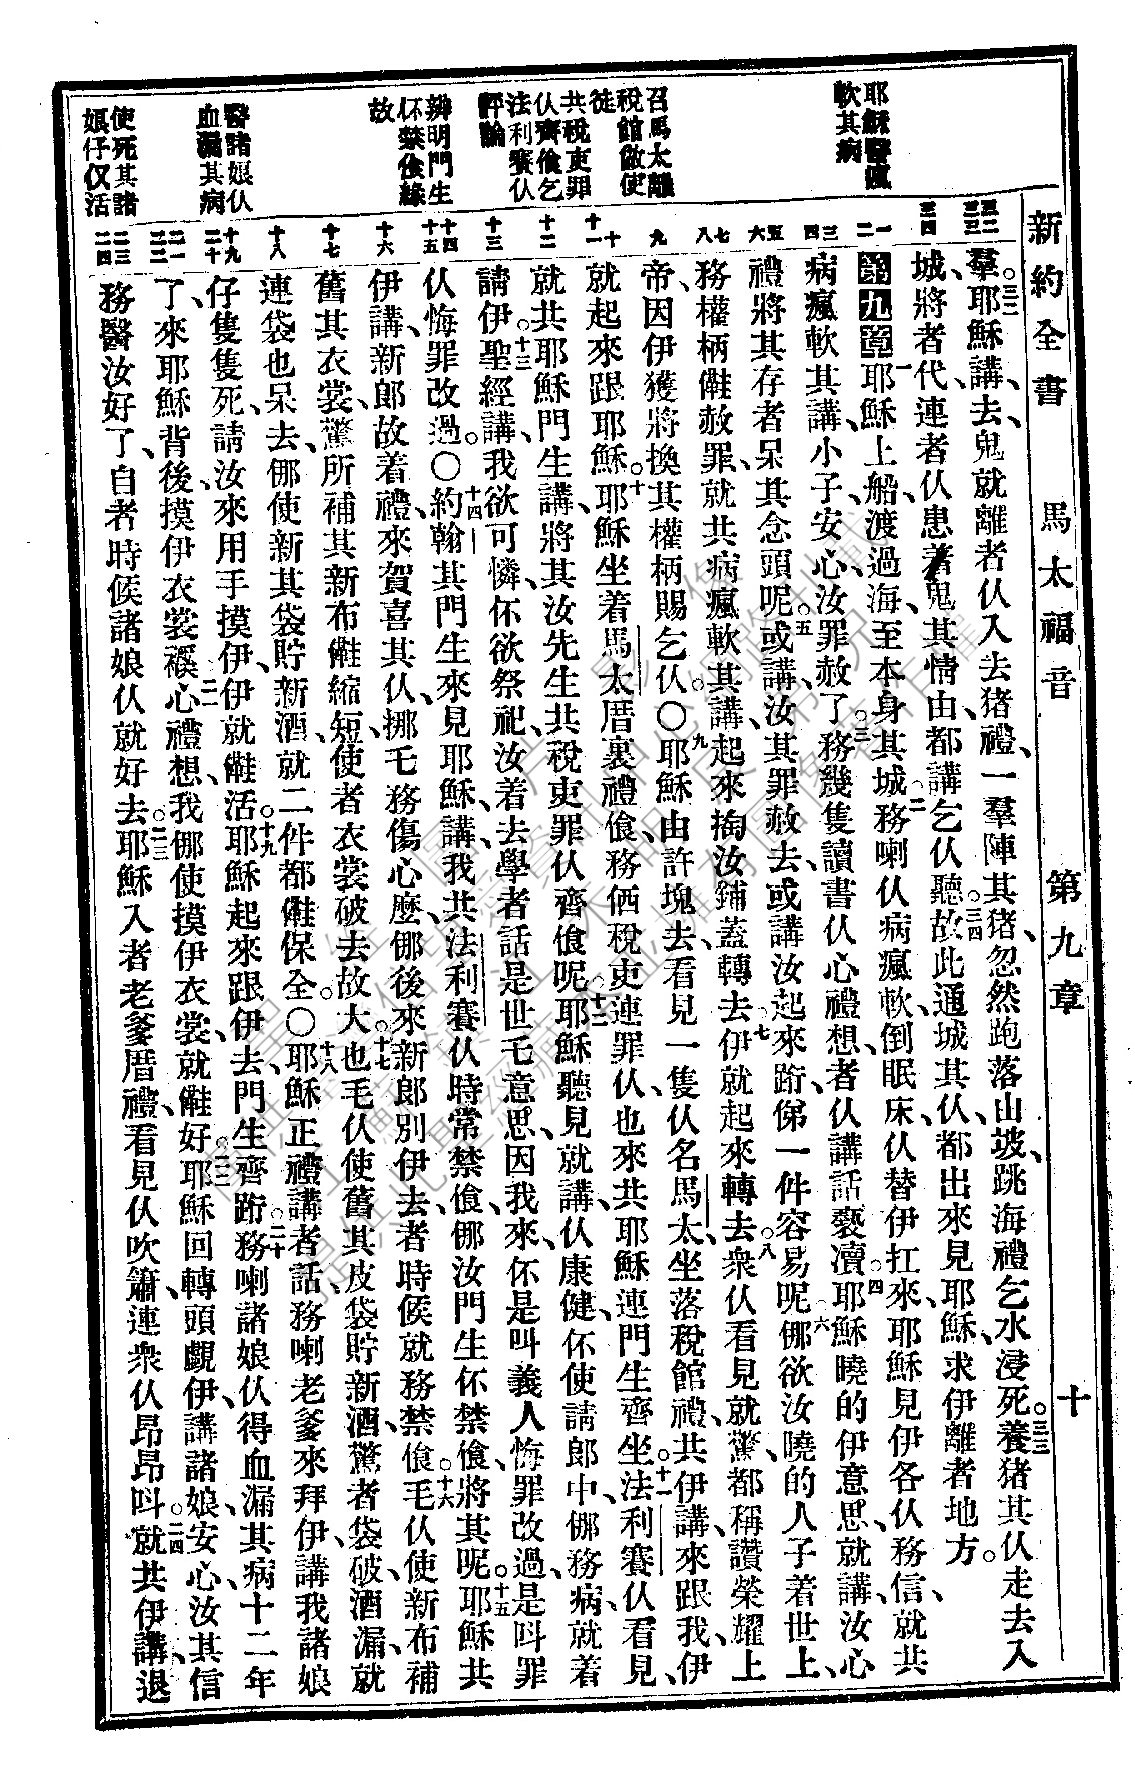 新約全書 馬太福音 第九章 十
耶穌醫瘋
軟其病
召馬太離
稅館做使
徒
共稅吏罪
仈齊儉乞
法利賽仈
評論
辨明門生
伓禁儉緣
故
醫諸娘仈
血漏其病
使死其諸
娘仔仅活
三二
三三
三四
一
二
三
四
五
六
七
八
九
十
十一
十二
十三
十四
十五
十六
十七
十八
十九
二十
二一
二二
二三
二四
羣。三二耶穌講、去、鬼就離者仈入去猪禮、一羣陣其猪忽然跑落山坡、跳海禮乞水浸死。三三養猪其仈走去入
城、將者代連者仈患著鬼其情由、都講乞仈聽。三四故此通城其仈、都出來見耶穌、求伊離者地方。
第九章 一耶穌上船、渡過海、至本身其城。二務喇仈病瘋軟、倒眠床、仈替伊扛來、耶穌見伊各仈務信、就共
病瘋軟其講、小子安心、汝罪赦了。三務幾隻讀書仈心禮想、者仈講話褻瀆。四耶穌曉的伊意思、就講、汝心
禮將其存者呆其念頭呢。五或講、汝其罪赦去、或講汝起來跡、俤一件容易呢。六㑚欲汝曉的人子着世上、
務權柄㒤赦罪、就共病瘋軟其講、起來掏汝鋪蓋轉去。七伊就起來轉去。八衆仈看見就驚、都稱讚榮耀上
帝、因伊獲將換其權柄賜乞仈。〇九耶穌由許塊去、看見一隻仈名馬太、坐落稅館禮、共伊講、來跟我、伊
就起來跟耶穌。十耶穌坐着馬太厝裏禮儉、務価稅吏連罪仈也來共耶穌連門生齊坐。十一法利賽仈看見、
就共耶穌門生講、將其汝先生共稅吏罪仈齊儉呢。十二耶穌聽見就講、仈康健伓使請郎中、㑚務病、就着
請伊。十三聖經講、我欲可憐伓欲祭祀、汝着去學者話是世乇意思、因我來、伓是叫義人悔罪改過、是呌罪
仈悔罪改過。〇十四約翰其門生來見耶穌、講、我共法利賽仈時常禁儉、㑚汝門生伓禁儉、將其呢。十五耶穌共
伊講、新郎故着禮、來賀喜其仈、挪乇務傷心麼、㑚後來新郎別伊去、者時候就務禁儉。十六乇仈使新布補
舊其衣裳、驚所補其新布㒤縮短、使者衣裳破去故大。十七也乇仈使舊其皮袋貯新酒、驚者袋破、酒漏、就
連袋也呆去、㑚使新其袋貯新酒、就二件都㒤保全。〇十八耶穌正禮講者話、務喇老爹來拜伊、講、我諸娘
仔隻隻死、請汝來用手摸伊、伊就㒤活。十九耶穌起來跟伊去、門生齊跡。二十務喇諸娘仈得血漏其病十二年
了、來耶穌背後、摸伊衣裳䙓。二一心禮想、我㑚使摸伊衣裳、就㒤好。二二耶穌回轉頭覷伊講、諸娘、安心、汝其信
務醫汝好了、自者時候諸娘仈就好去。二三耶穌入者老爹厝禮、看見仈吹簫連衆仈昂昂呌、二四就共伊講、退